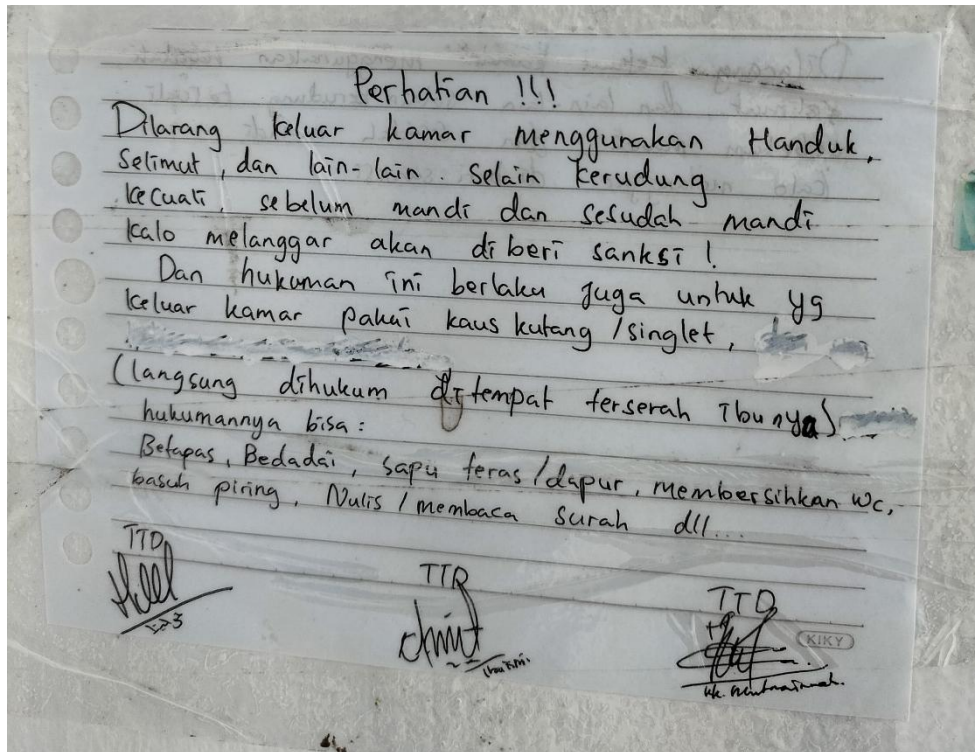 Perhatian !!!
Dilarang keluar kamar menggunakan Handuk,
Selimut, dan lain-lain. Selain kerudung.
kecuali, sebelum mandi dan sesudah mandi
kalo melanggar akan diberi sanksi !
Dan hukuman ini berlaku juga untuk yg
keluar kamar pakai kaus kutang /singlet,
(langsung dihukum di tempat terserah ibunya)
hukumannya bisa :
Betapas, Bedadai, sapu teras/dapur, membersihkan wc,
basuh piring, Nulis / membaca surah dll...
TTD TTD TTD
KIKY